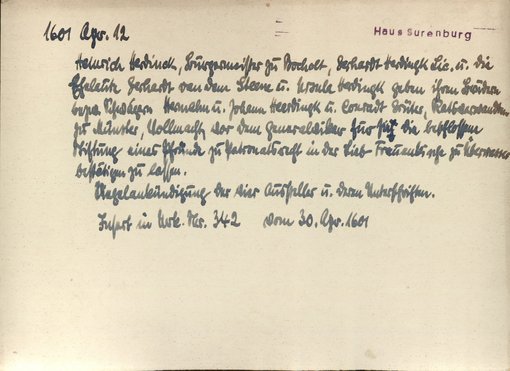 1601 Apr. 12
Haus Surenburg
Heinrich Herdinck, Bürgermeister zu Bocholt, Gerhardt Herdingk Lic. u. die
Eheleute Gerhardt van dem Steene u. Ursula Herdingk geben ihren Brüdern
bezw. Schwägern Hermann u. Johann Heerdingk u. Conradt Ratsverwandten
zu Münster, Vollmacht, vor dem Generalvikar die beschlossene
Stiftung einer Pfründe zu Patronatsrecht in der Lieb-Frauenkirche zu Überwasser
bestätigen zu lassen.
Siegelankündigung der vier Aussteller u. deren Unterschriften.
Insert in Urk. Nr. 342 vom 30. Apr. 1601